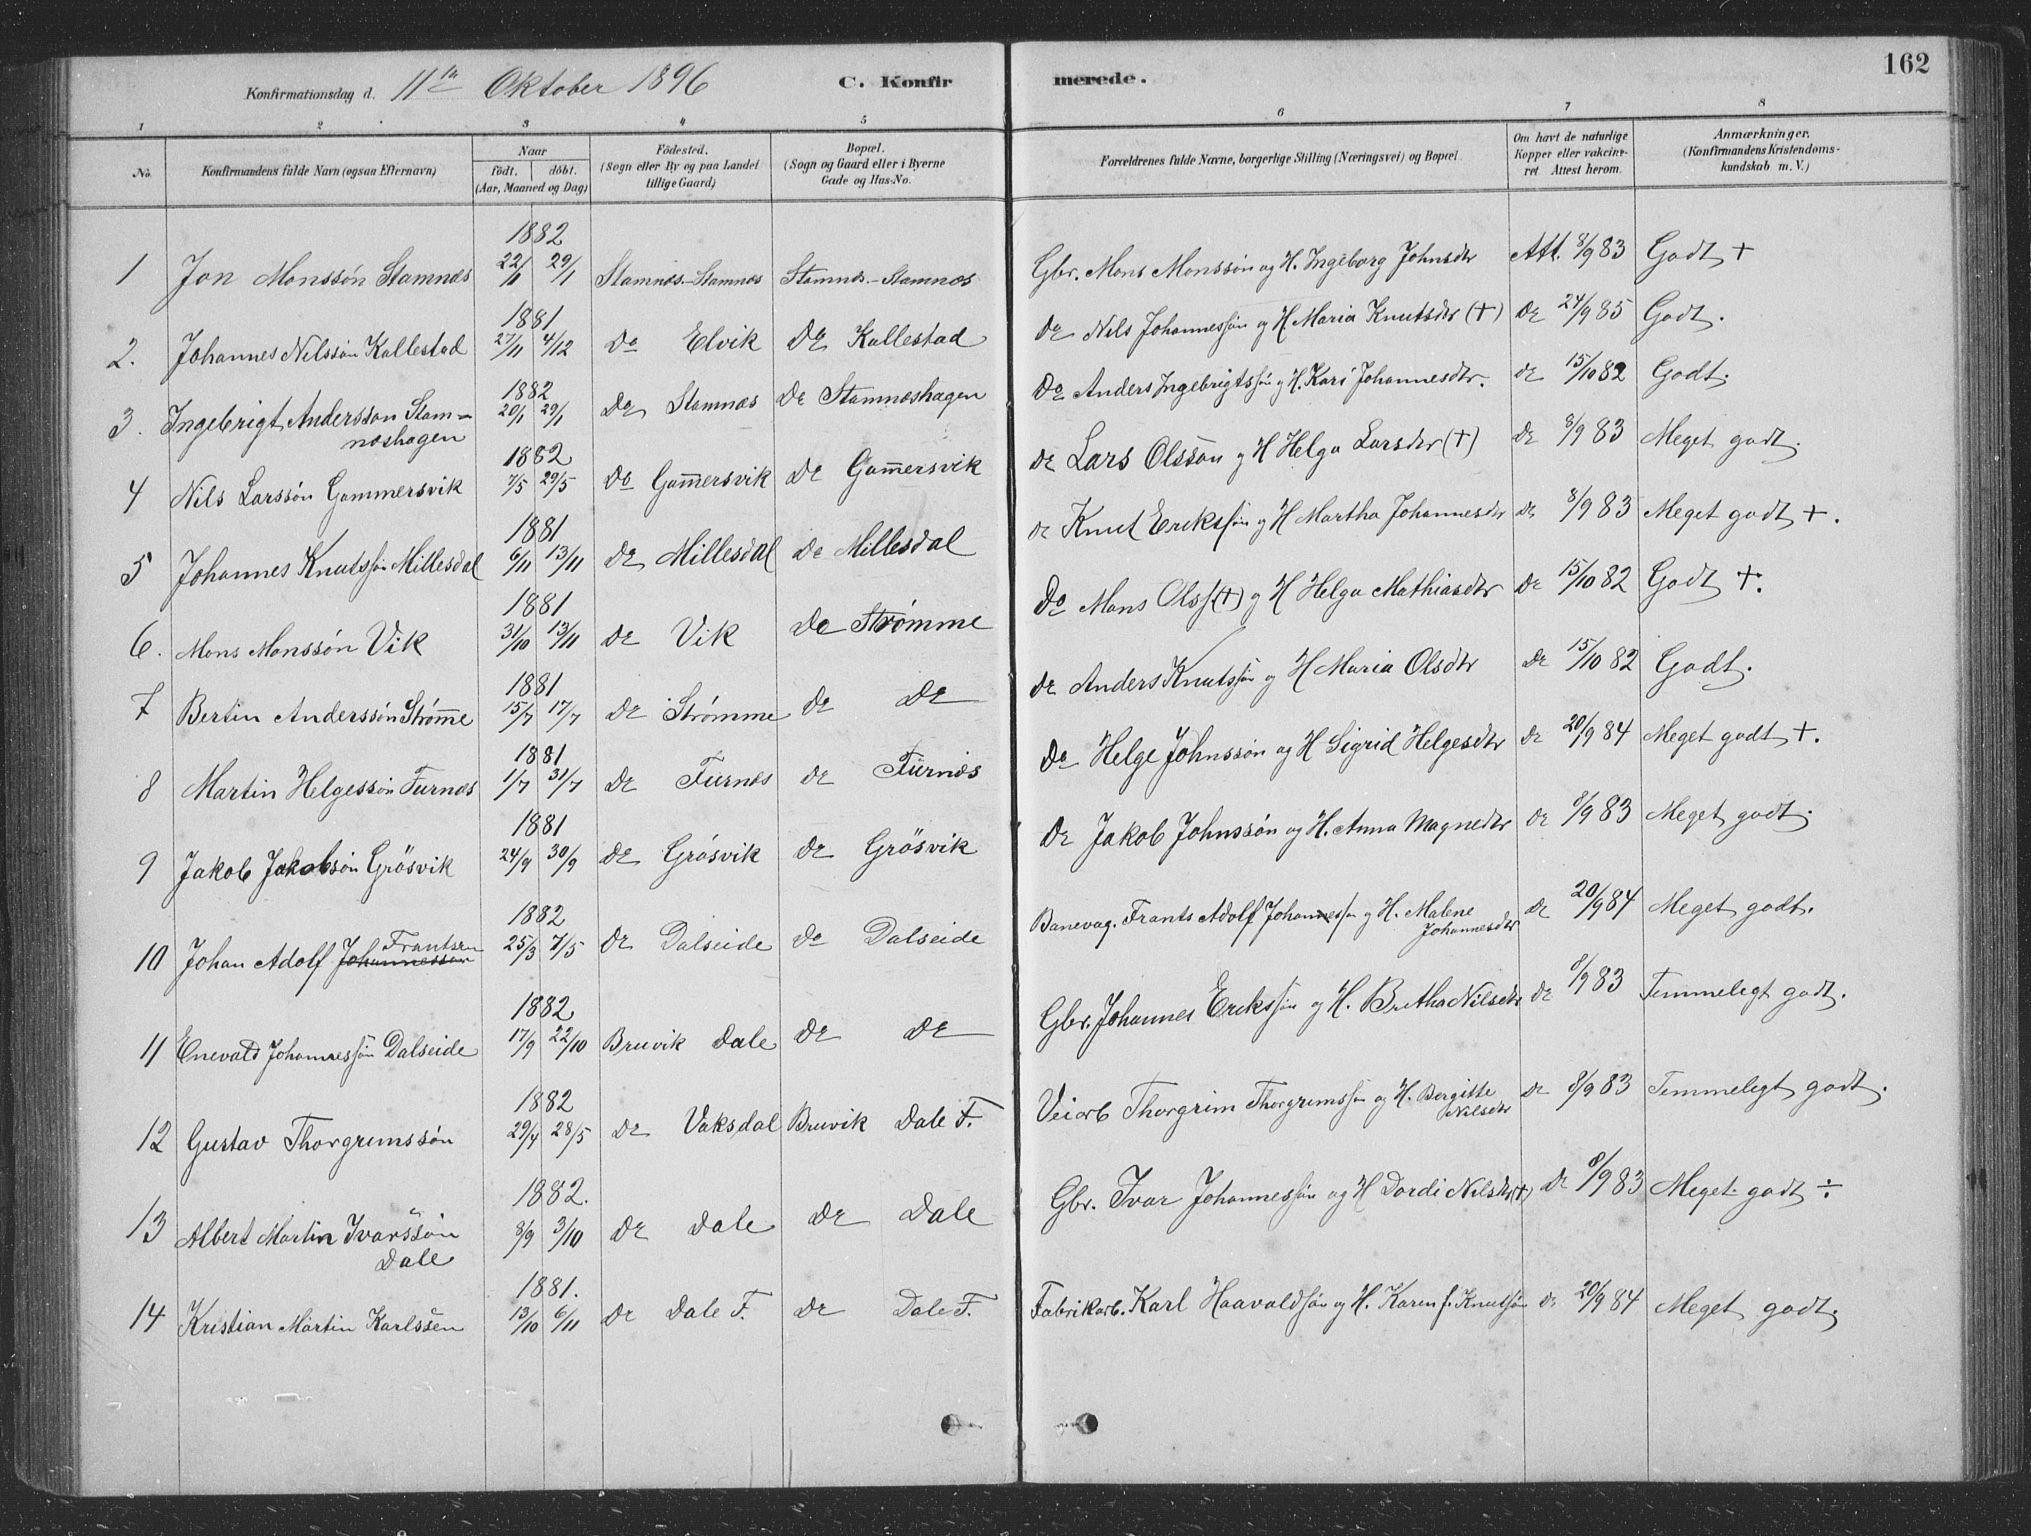 162
Konfirmationsdag d. 11te Oktober 1896 C. Konfirmerede.
1 2 3 4 5 6 7 8
No. Konfirmandens fulde Navn (ogsaa Efternavn) Naar födt. döbt. (Aar, Maaned og Dag) Födested. (Sogn eller By og paa Landet tillige Gaard) Bopæl. (Sogn og Gaard eller i Byerne Gade og Hus-No. Forældrenes fulde Navne, borgerlige Stilling (Næringsvei) og Bopæl. Om havt de naturlige Kopper eller vakcineret. Attest herom. Anmærkninger. (Konfirmandens Kristendomskundskab m. V.)
1882
1 Jon Monssön Stamnæs 22/1 29/1 Stamnæs.-Stamnæs Stamnæs.-Stamnæs Gbr. Mons Monssön og H. Ingeborg Johnsdtr Att. 8/9 83 Godt +
1881
2. Johannes Nilssön Kallestad 27/11 4/12 Do Elvik Do Kallestad Do Nils Johannessön og H Maria Knutsdtr (+) Do 24/9 85 Godt.
1882
3. Ingebrigt Andersson Stam- 20/1 29/1 Do Stamnæs Do Stamnæshagen Do Anders Ingebrigtssön og H. Kari Johannesdtr. Do 15/10 82 Godt.
næshagen
1882
4 Nils Larssön Gammersvik 7/5 29/5 Do Gam̄ersvik Do Gam̄ersvik Do Lars Olssön og H Helga Larsdtr (+) Do 8/9 83 Meget godt.
1881
5 Johannes Knutssön Millesdal 6/11 13/11 Do Millesdal Do Millesdal Do Knut Erikssön og H Martha Johannesdtr Do 8/9 83 Meget godt +.
1881
6. Mons Monssön Vik 31/10 13/11 Do Vik Do Strømme Do Mons Olss (+) og H Helga Mathiasdtr Do 15/10 82 Godt +.
1881
7 Bertin Anderssön Strøm̄e 15/7 17/7 Do Strömme Do Do Do Anders Knutssön og H Maria Olsdtr Do 15/10 82 Godt.
1881
8 Martin Helgessön Furnæs 1/7 31/7 Do Furnæs Do Furnæs Do Helge Johnssön og H Sigrid Helgesdtr Do 20/9 84 Meget godt +.
1881
9 Jakob Jakobsön Grösvik 24/9 30/9 Do Grösvik Do Grösvik Do Jakob Johnssön og H. Anna Magnedtr Do 8/9 83 Meget godt.
1882
10 Johan Adolf Johannesson Frantsen 25/3 7/5 Do Dalseide Do Dalseide Banevag. Frants Adolf Johannessn og H. Malene Johannesdtr Do 20/9 84 Meget godt.
1882
11 Enevald Johannessön Dalseide 17/9 22/10 Bruvik Dale Do Do Gbr. Johannes Erikssön og H. Bretha Nilsdtr Do 8/9 83 Temmeligt godt.
1882
12 Gustav Thorgrimssön 29/4 28/5 Do Vaksdal Bruvik Dale F. Veiarb Thorgrim Thorgrimssön og H. Bergitte Nilsdtr Do 8/9 83 Temmeligt godt.
1882.
13 Albert Martin Ivarssön 8/9 3/10 Do Dale Do Dale Gbr. Ivar Johannessön og H Dordi Nilsdtr (+) Do 8/9 83 Meget godt ÷
Dale
1881.
14 Kristian Martin Karlssen 13/10 6/11 Do Dale F. Do Dale F. Fabrikarb. Karl Haavaldsön og H. Karen f. Knutsön Do 20/9 84 Meget godt.